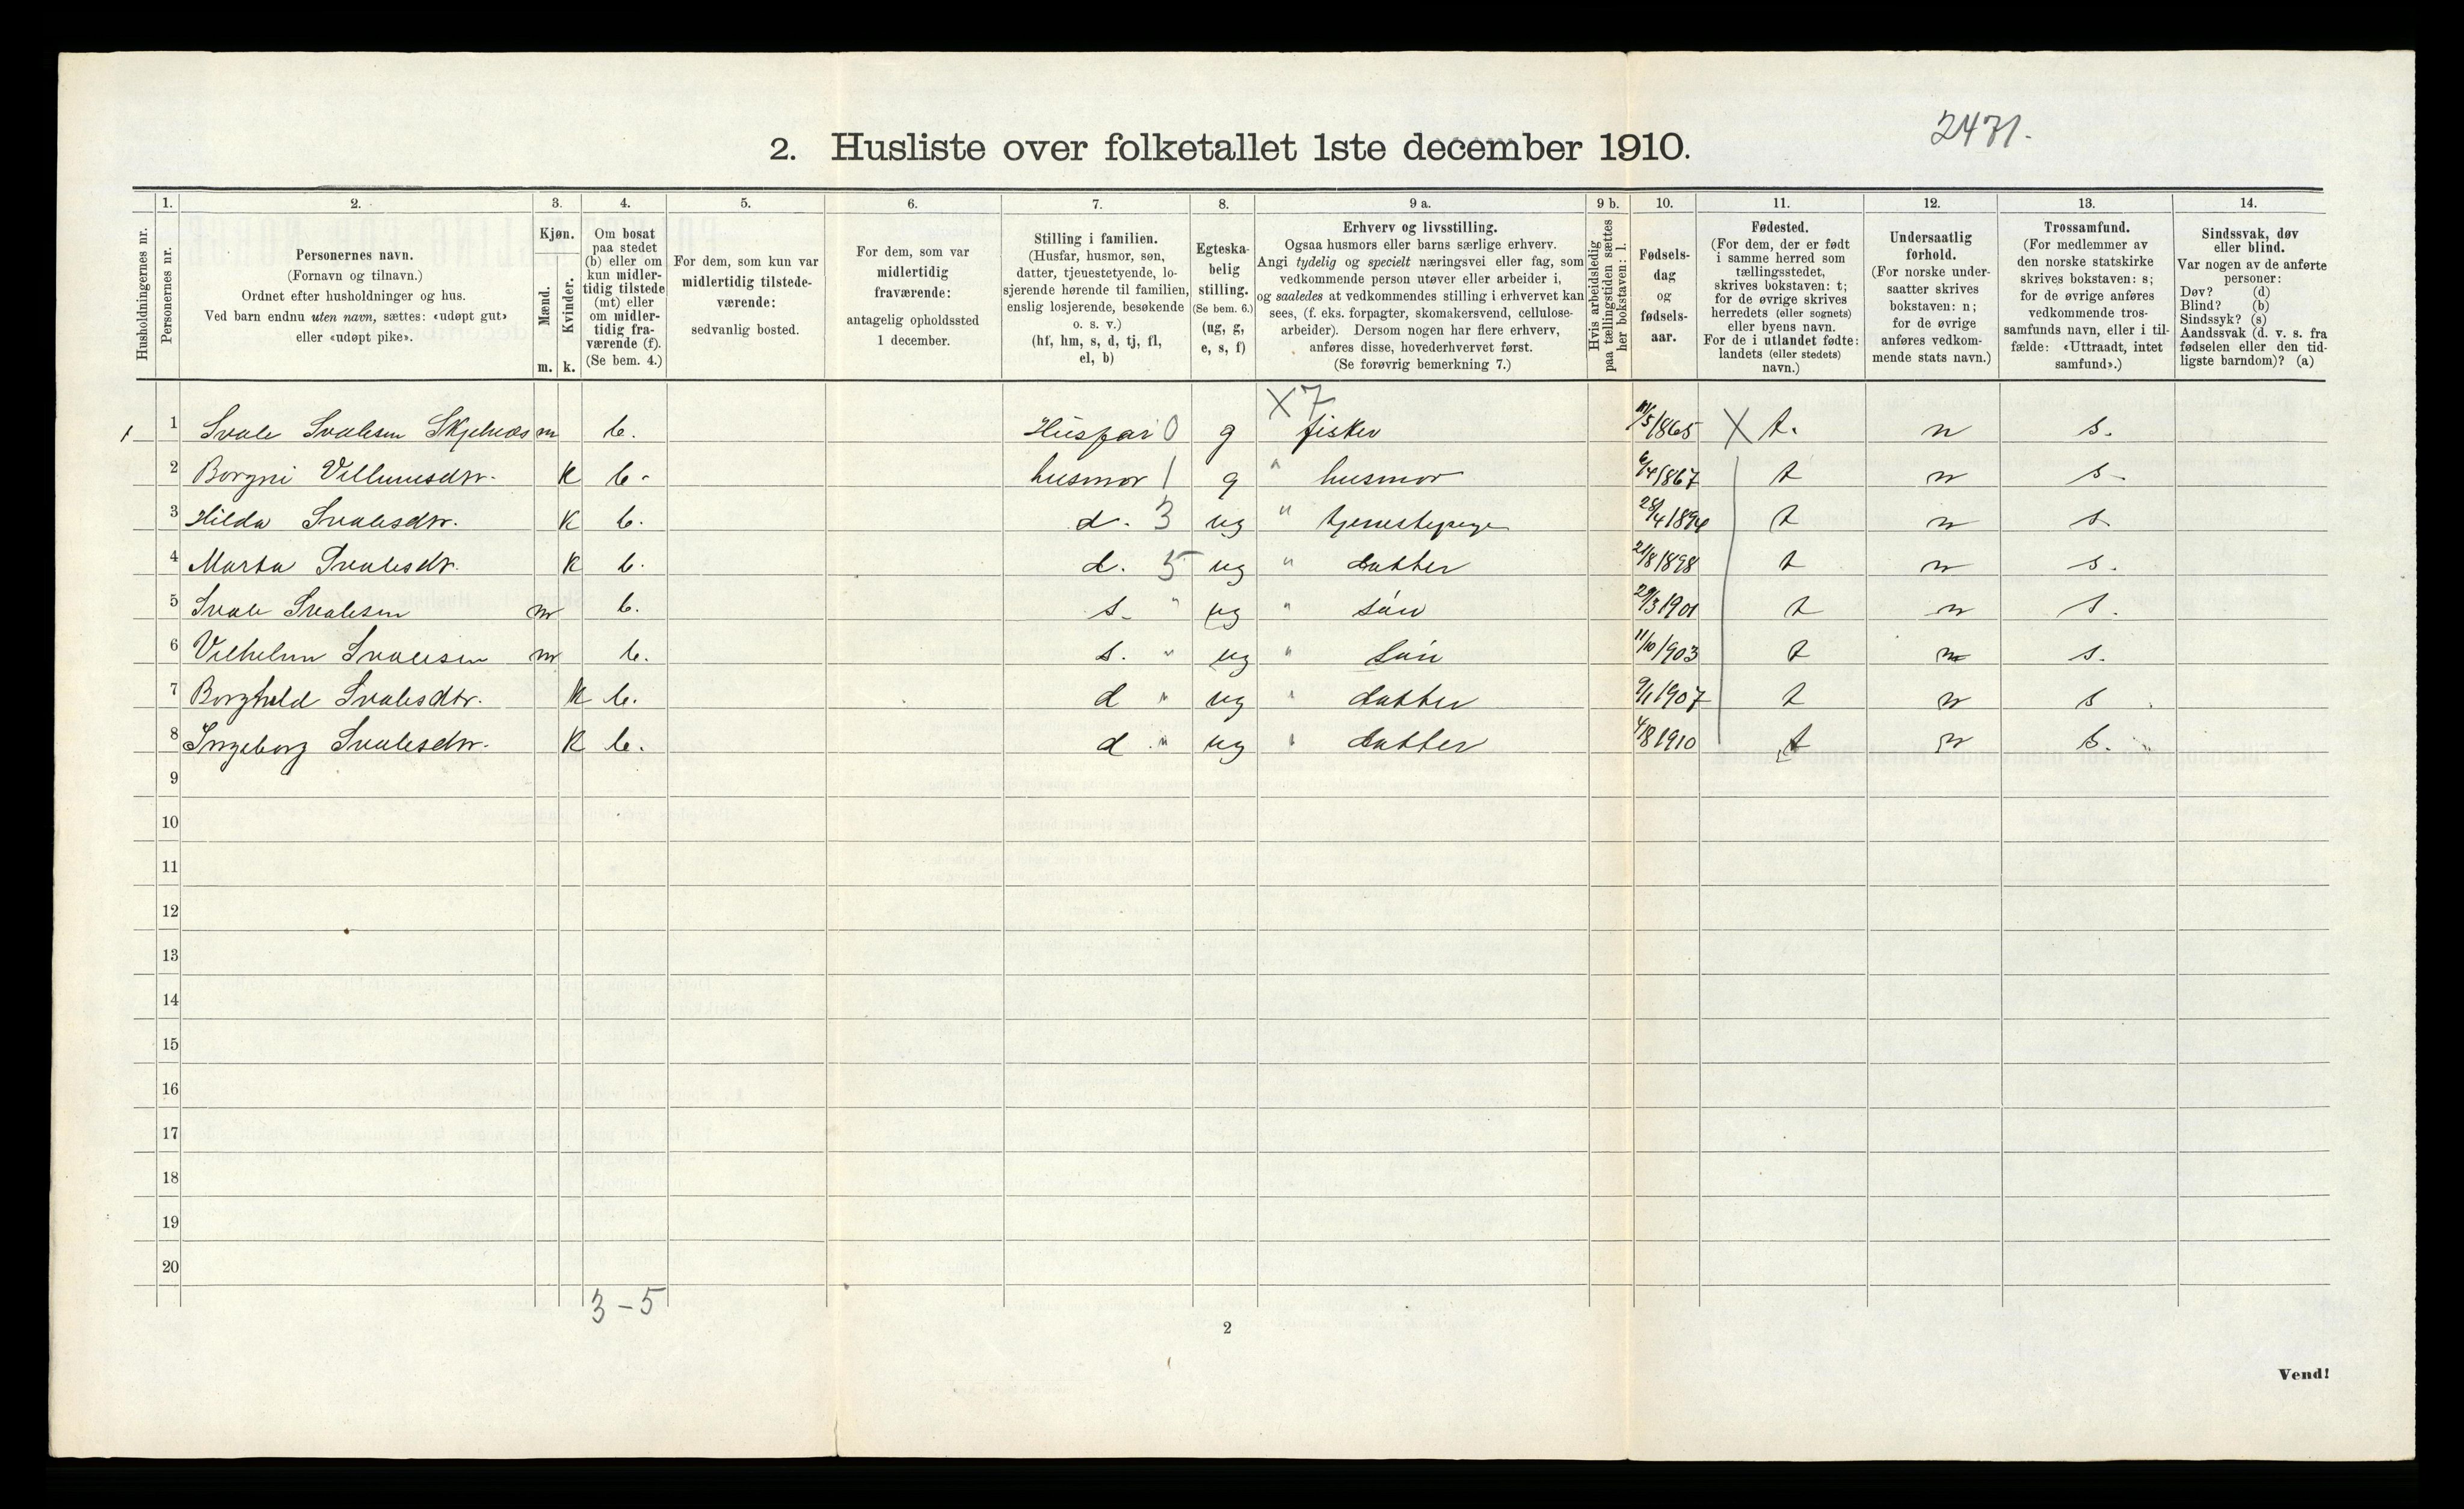 2471.
2. Husliste over folketallet 1ste december 1910.
Husholdningernes nr.
1. Personernes nr.
2. Personernes navn.
(Fornavn og tilnavn.)
Ordnet efter husholdninger og hus.
Ved barn endnu uten navn, sættes: «udøpt gut»
eller «udøpt pike».
3. Kjøn.
Mænd. m.
Kvinder. k.
4. Om bosat
paa stedet
(b) eller om
kun midler-
tidig tilstede
(mt) eller
om midler-
tidig fra-
værende (f).
(Se bem. 4.)
5. For dem, som kun var
midlertidig tilstede-
værende:
sedvanlig bosted.
6. For dem, som var
midlertidig
fraværende:
antagelig opholdssted
1 december.
7. Stilling i familien.
(Husfar, husmor, søn,
datter, tjenestetyende, lo-
sjerende hørende til familien,
enslig losjerende, besøkende
o. s. v.)
(hf, hm, s, d, tj, fl,
el, b)
8. Egteska-
belig
stilling.
(Se bem. 6.)
(ug, g,
e, s, f)
9 a. Erhverv og livsstilling.
Ogsaa husmors eller barns særlige erhverv.
Angi tydelig og specielt næringsvei eller fag, som
vedkommende person utøver eller arbeider i,
og saaledes at vedkommendes stilling i erhvervet kan
sees, (f. eks. forpagter, skomakersvend, cellulose-
arbeider). Dersom nogen har flere erhverv,
anføres disse, hovederhvervet først.
(Se forøvrig bemerkning 7.)
9 b. Hvis arbeidsledig
paa tællingstiden sættes
her bokstaven: l.
10. Fødsels-
dag
og
fødsels-
aar.
11. Fødested.
(For dem, der er født
i samme herred som
tællingsstedet,
skrives bokstaven: t;
for de øvrige skrives
herredets (eller sognets)
eller byens navn.
For de i utlandet fødte:
landets (eller stedets)
navn.)
12. Undersaatlig
forhold.
(For norske under-
saatter skrives
bokstaven: n;
for de øvrige
anføres vedkom-
mende stats navn.)
13. Trossamfund.
(For medlemmer av
den norske statskirke
skrives bokstaven: s;
for de øvrige anføres
vedkommende tros-
samfunds navn, eller i til-
fælde: «Uttraadt, intet
samfund».)
14. Sindssvak, døv
eller blind.
Var nogen av de anførte
personer:
Døv? (d)
Blind? (b)
Sindssyk? (s)
Aandssvak (d. v. s. fra
fødselen eller den tid-
ligste barndom)? (a)
X 7
1 1 Svale Svalesen Skjelnæs m b. Husfar 0 g fisker 11/5 1865 X t. n s.
2 Borgni Villumsdtr. K b. husmor 1 g " husmor 6/4 1867 t n s.
3 Hilda Svalesdtr. K b. d. 3 ug " tjenestepige 28/4 1894 t n s.
4 Marta Svalesdtr. K b. d. 5 ug " datter 21/8 1898 t n s.
5 Svale Svalesen m b. s. " ug " søn 29/3 1901 t n s.
6 Vilhelm Svalesen m b. s. " ug " Søn 11/10 1903 t n s.
7 Borghild Svalesdtr. K b. d " ug " datter 9/1 1907 t n s
8 Ingeborg Svalesdtr. K b. d " ug " datter 4/8 1910 t n s.
9
10
11
12
13
14
15
16
17
18
19
20
3 - 5
2
Vend!